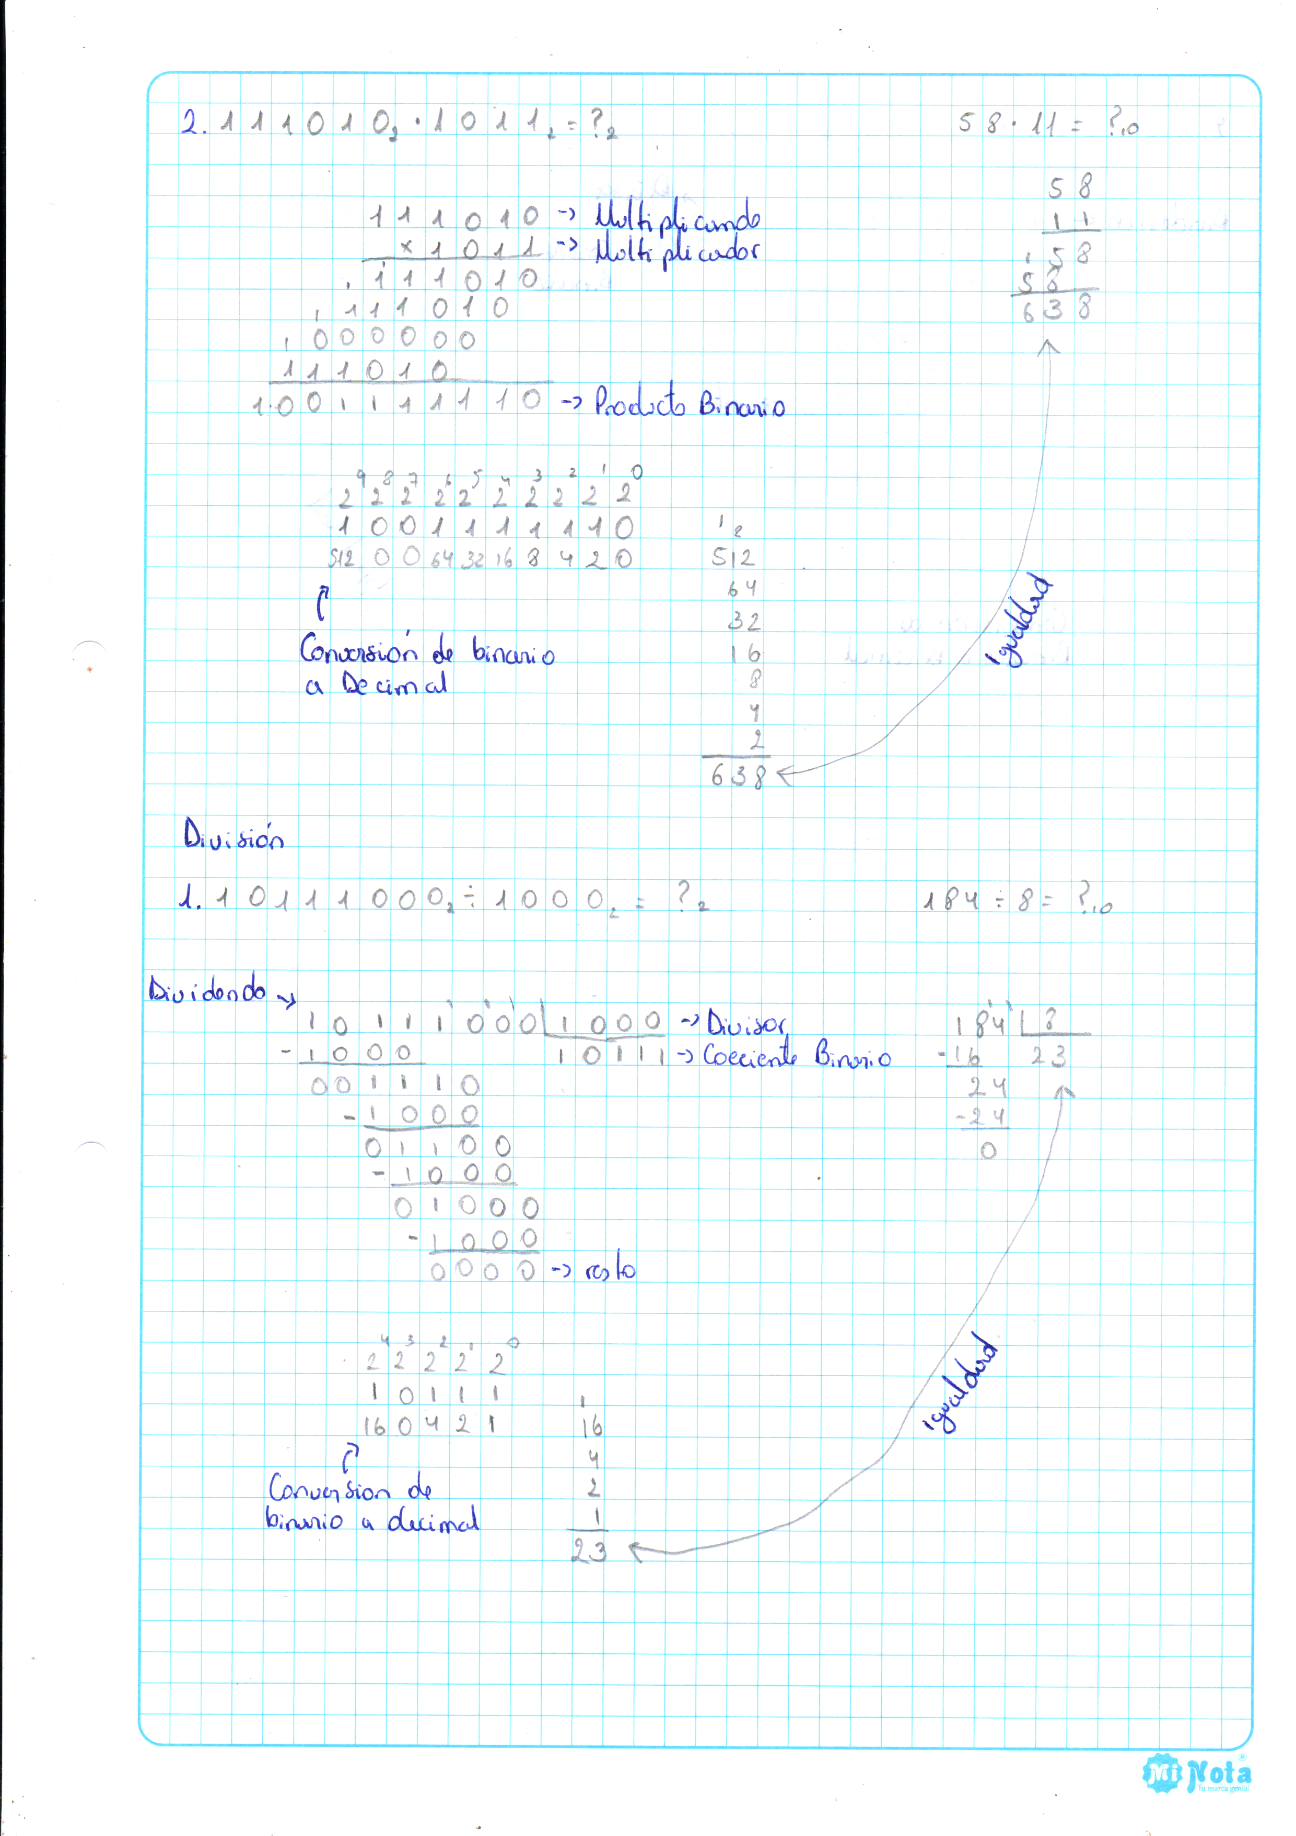 2. 1 1 1 0 1 0₂ · 1 0 1 1₂ = ?₂
58 · 11 = ?₁₀
1 1 1 0 1 0 -> Multiplicando
x 1 0 1 1 -> Multiplicador
1 1 1 0 1 0
1 1 1 0 1 0
0 0 0 0 0 0
1 1 1 0 1 0
1 0 0 1 1 1 1 1 1 0 -> Producto Binario
5 8
1 1
5 8
5 8
6 3 8
2⁹ 2⁸ 2⁷ 2⁶ 2⁵ 2⁴ 2³ 2² 2¹ 2⁰
1 0 0 1 1 1 1 1 1 0
512 0 0 64 32 16 8 4 2 0
Conversión de binario
a Decimal
1 2
512
64
32
16
8
4
2
638
igualdad
División
1. 1 0 1 1 1 0 0 0₂ ÷ 1 0 0 0₂ = ?₂
184 ÷ 8 = ?₁₀
Dividendo ->
1 0 1 1 1 0 0 0 | 1 0 0 0 -> Divisor
- 1 0 0 0 1 0 1 1 1 -> Cociente Binario
0 0 1 1 1 0
- 1 0 0 0
0 1 1 0 0
- 1 0 0 0
0 1 0 0 0
- 1 0 0 0
0 0 0 0 -> resto
184 | 8
-16 23
24
-24
0
2⁴ 2³ 2² 2¹ 2⁰
1 0 1 1 1
16 0 4 2 1
Conversion de
binario a decimal
1
16
4
2
1
23
igualdad
Mi Nota
Tu marca genial